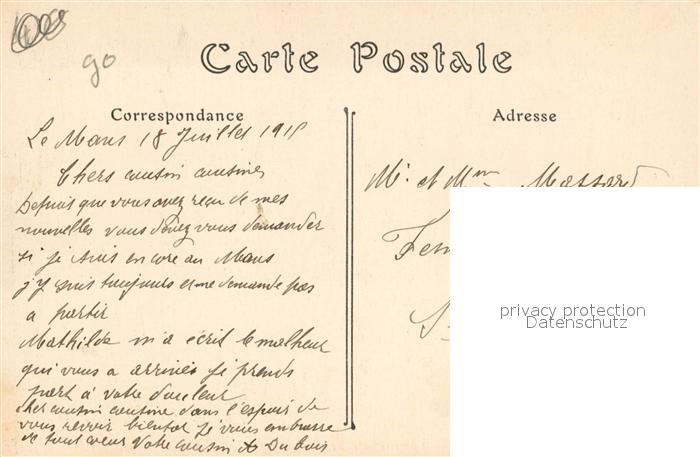 go
Carte Postale
Correspondance
Adresse
Le Mans 18 Juillet 1915
Chers cousin cousines
Depuis que vous avez reçu de mes
nouvelles vous devez vous demander
si je suis encore au Mans
j'y suis toujours et ne demande pas
a partir
Mathilde m'a écrit le malheur
qui vous a arrivés je prends
part à votre douleur
cher cousin cousine dans l'espoir de
vous revoir bientot je vous embrasse
de tout coeur Votre cousin Dubois
Mr et Mm Massard
privacy protection
Datenschutz